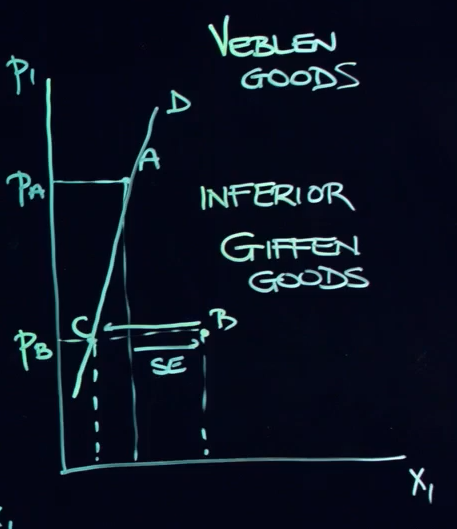 VEBLEN
GOODS
P1
D
A
PA
INFERIOR
GIFFEN
GOODS
C
B
PB
SE
X1